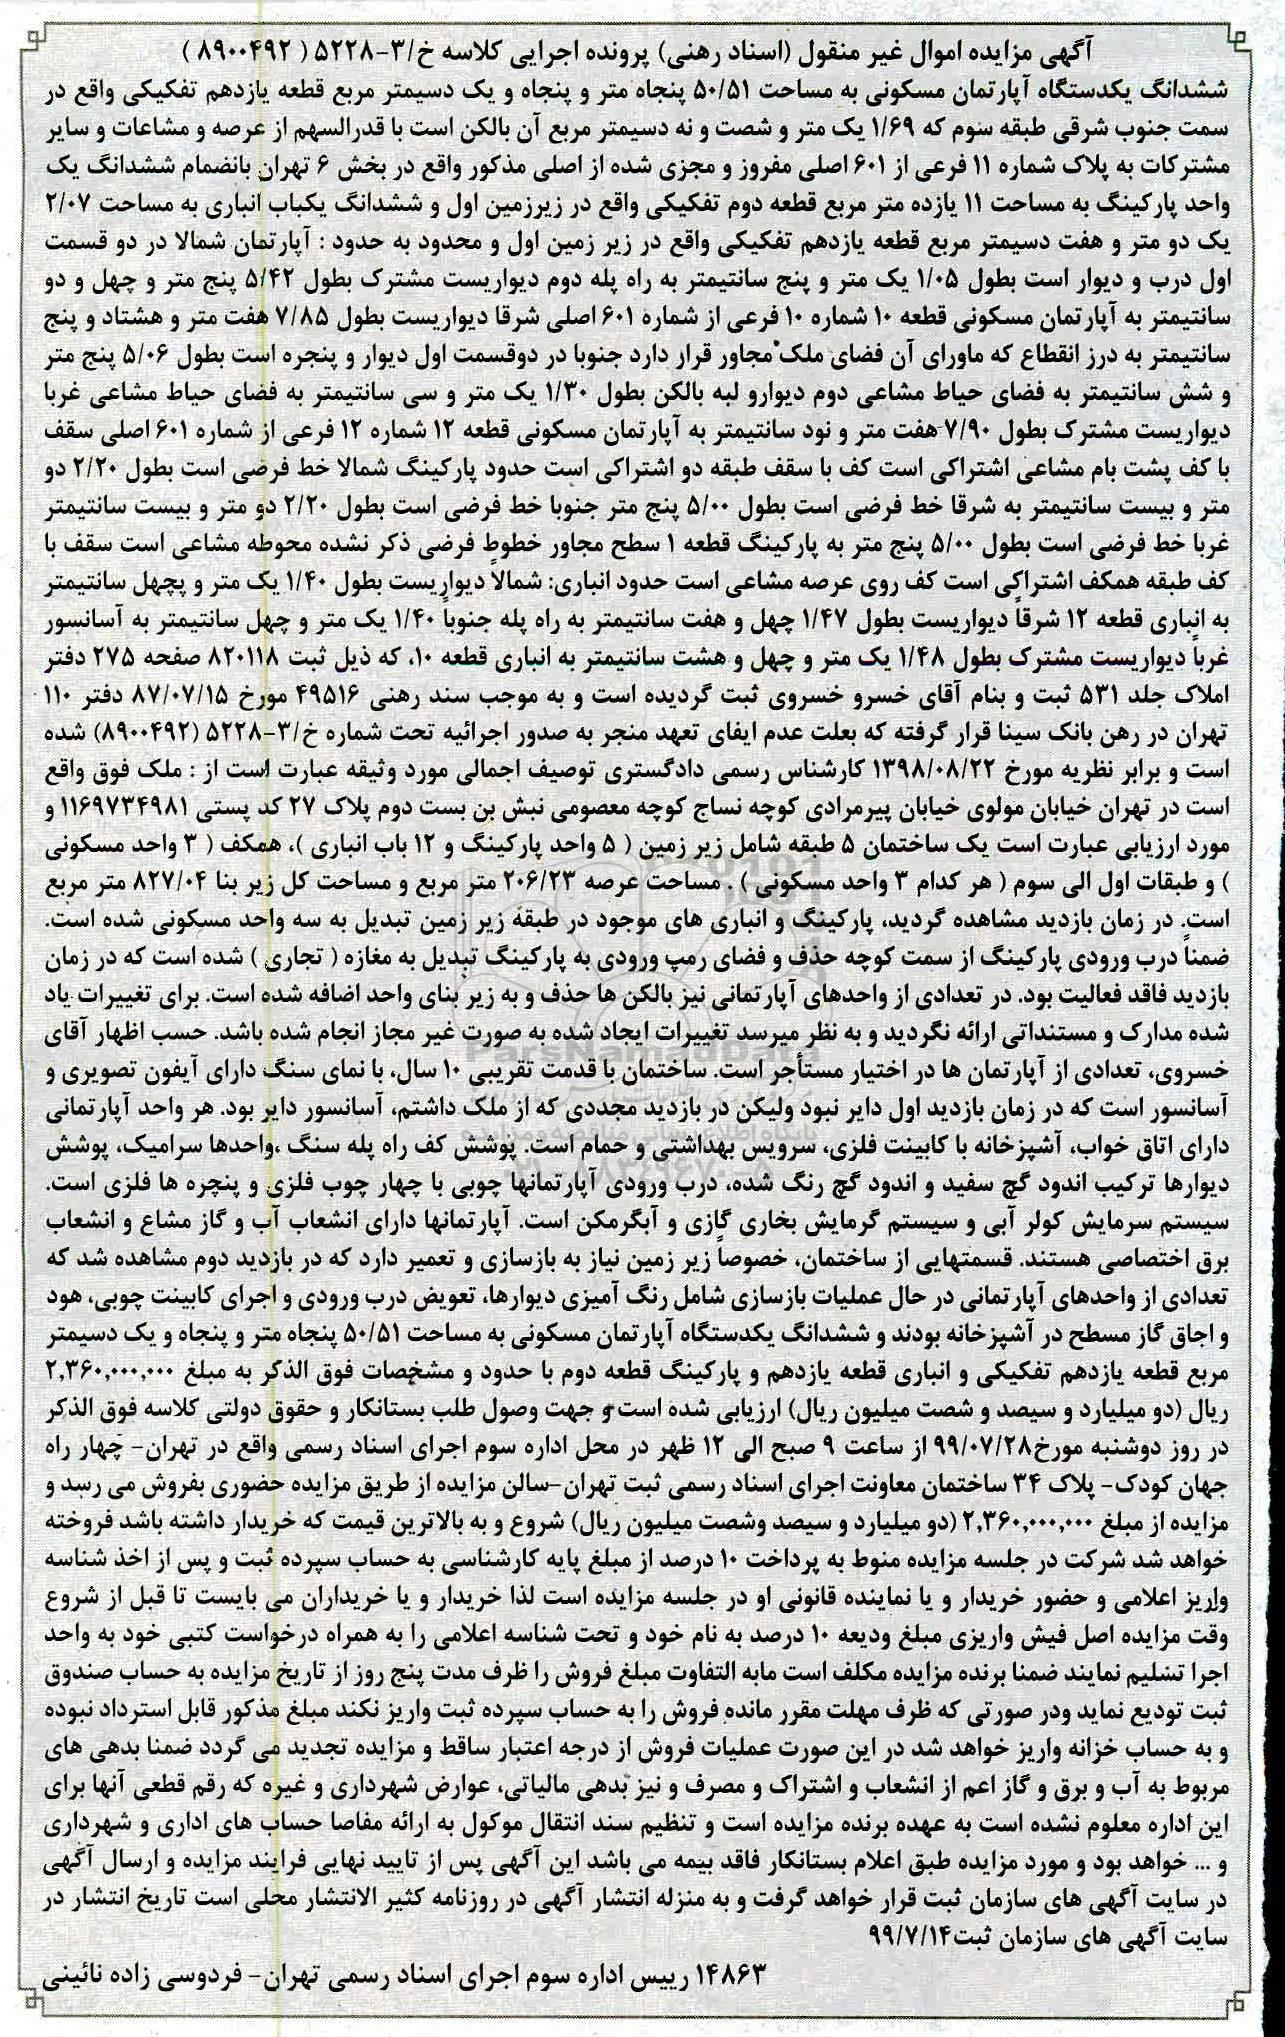 آگهی مزایده اموال غیر منقول (اسناد رهنی) پرونده اجرایی کلاسه خ/۳-۵۲۲۸ ( ۸۹۰۰۴۹۲ )
ششدانگ یکدستگاه آپارتمان مسکونی به مساحت ۵۰/۵۱ پنجاه متر و پنجاه و یک دسیمتر مربع قطعه یازدهم تفکیکی واقع در
سمت جنوب شرقی طبقه سوم که ۱/۶۹ یک متر و شصت و نه دسیمتر مربع آن بالکن است با قدرالسهم از عرصه و مشاعات و سایر
مشترکات به پلاک شماره ۱۱ فرعی از ۶۰۱ اصلی مفروز و مجزی شده از اصلی مذکور واقع در بخش ۶ تهران بانضمام ششدانگ یک
واحد پارکینگ به مساحت ۱۱ یازده متر مربع قطعه دوم تفکیکی واقع در زیرزمین اول و ششدانگ یکباب انباری به مساحت ۲/۰۷
یک دو متر و هفت دسیمتر مربع قطعه یازدهم تفکیکی واقع در زیر زمین اول و محدود به حدود : آپارتمان شمالا در دو قسمت
اول درب و دیوار است بطول ۱/۰۵ یک متر و پنج سانتیمتر به راه پله دوم دیواریست مشترک بطول ۵/۴۲ پنج متر و چهل و دو
سانتیمتر به آپارتمان مسکونی قطعه ۱۰ شماره ۱۰ فرعی از شماره ۶۰۱ اصلی شرقا دیواریست بطول ۷/۸۵ هفت متر و هشتاد و پنج
سانتیمتر به درز انقطاع که ماورای آن فضای ملک مجاور قرار دارد جنوبا در دوقسمت اول دیوار و پنجره است بطول ۵/۰۶ پنج متر
و شش سانتیمتر به فضای حیاط مشاعی دوم دیوارو لبه بالکن بطول ۱/۳۰ یک متر و سی سانتیمتر به فضای حیاط مشاعی غربا
دیواریست مشترک بطول ۷/۹۰ هفت متر و نود سانتیمتر به آپارتمان مسکونی قطعه ۱۲ شماره ۱۲ فرعی از شماره ۶۰۱ اصلی سقف
با کف پشت بام مشاعی اشتراکی است کف با سقف طبقه دو اشتراکی است حدود پارکینگ شمالا خط فرضی است بطول ۲/۲۰ دو
متر و بیست سانتیمتر به شرقا خط فرضی است بطول ۵/۰۰ پنج متر جنوبا خط فرضی است بطول ۲/۲۰ دو متر و بیست سانتیمتر
غربا خط فرضی است بطول ۵/۰۰ پنج متر به پارکینگ قطعه ۱ سطح مجاور خطوط فرضی ذکر نشده محوطه مشاعی است سقف با
کف طبقه همکف اشتراکی است کف روی عرصه مشاعی است حدود انباری: شمالاً دیواریست بطول ۱/۴۰ یک متر و پچهل سانتیمتر
به انباری قطعه ۱۲ شرقاً دیواریست بطول ۱/۴۷ چهل و هفت سانتیمتر به راه پله جنوباً ۱/۴۰ یک متر و چهل سانتیمتر به آسانسور
غرباً دیواریست مشترک بطول ۱/۴۸ یک متر و چهل و هشت سانتیمتر به انباری قطعه ۱۰، که ذیل ثبت ۸۲۰۱۱۸ صفحه ۲۷۵ دفتر
املاک جلد ۵۳۱ ثبت و بنام آقای خسرو خسروی ثبت گردیده است و به موجب سند رهنی ۴۹۵۱۶ مورخ ۸۷/۰۷/۱۵ دفتر ۱۱۰
تهران در رهن بانک سینا قرار گرفته که بعلت عدم ایفای تعهد منجر به صدور اجرائیه تحت شماره خ/۳-۵۲۲۸ (۸۹۰۰۴۹۲) شده
است و برابر نظریه مورخ ۱۳۹۸/۰۸/۲۲ کارشناس رسمی دادگستری توصیف اجمالی مورد وثیقه عبارت است از : ملک فوق واقع
است در تهران خیابان مولوی خیابان پیرمرادی کوچه نساج کوچه معصومی نبش بن بست دوم پلاک ۲۷ کد پستی ۱۱۶۹۷۳۴۹۸۱ و
مورد ارزیابی عبارت است یک ساختمان ۵ طبقه شامل زیر زمین ( ۵ واحد پارکینگ و ۱۲ باب انباری )، همکف ( ۳ واحد مسکونی
) و طبقات اول الی سوم ( هر کدام ۳ واحد مسکونی ) . مساحت عرصه ۲۰۶/۲۳ متر مربع و مساحت کل زیر بنا ۸۲۷/۰۴ متر مربع
است. در زمان بازدید مشاهده گردید، پارکینگ و انباری های موجود در طبقه زیر زمین تبدیل به سه واحد مسکونی شده است.
ضمناً درب ورودی پارکینگ از سمت کوچه حذف و فضای رمپ ورودی به پارکینگ تبدیل به مغازه ( تجاری ) شده است که در زمان
بازدید فاقد فعالیت بود. در تعدادی از واحدهای آپارتمانی نیز بالکن ها حذف و به زیر بنای واحد اضافه شده است. برای تغییرات یاد
شده مدارک و مستنداتی ارائه نگردید و به نظر میرسد تغییرات ایجاد شده به صورت غیر مجاز انجام شده باشد. حسب اظهار آقای
خسروی، تعدادی از آپارتمان ها در اختیار مستأجر است. ساختمان با قدمت تقریبی ۱۰ سال، با نمای سنگ دارای آیفون تصویری و
آسانسور است که در زمان بازدید اول دایر نبود ولیکن در بازدید مجددی که از ملک داشتم، آسانسور دایر بود. هر واحد آپارتمانی
دارای اتاق خواب، آشپزخانه با کابینت فلزی، سرویس بهداشتی و حمام است. پوشش کف راه پله سنگ ،واحدها سرامیک، پوشش
دیوارها ترکیب اندود گچ سفید و اندود گچ رنگ شده، درب ورودی آپارتمانها چوبی با چهار چوب فلزی و پنجره ها فلزی است.
سیستم سرمایش کولر آبی و سیستم گرمایش بخاری گازی و آبگرمکن است. آپارتمانها دارای انشعاب آب و گاز مشاع و انشعاب
برق اختصاصی هستند. قسمتهایی از ساختمان، خصوصاً زیر زمین نیاز به بازسازی و تعمیر دارد که در بازدید دوم مشاهده شد که
تعدادی از واحدهای آپارتمانی در حال عملیات بازسازی شامل رنگ آمیزی دیوارها، تعویض درب ورودی و اجرای کابینت چوبی، هود
و اجاق گاز مسطح در آشپزخانه بودند و ششدانگ یکدستگاه آپارتمان مسکونی به مساحت ۵۰/۵۱ پنجاه متر و پنجاه و یک دسیمتر
مربع قطعه یازدهم تفکیکی و انباری قطعه یازدهم و پارکینگ قطعه دوم با حدود و مشخصات فوق الذکر به مبلغ ۲,۳۶۰,۰۰۰,۰۰۰
ریال (دو میلیارد و سیصد و شصت میلیون ریال) ارزیابی شده است و جهت وصول طلب بستانکار و حقوق دولتی کلاسه فوق الذکر
در روز دوشنبه مورخ۹۹/۰۷/۲۸ از ساعت ۹ صبح الی ۱۲ ظهر در محل اداره سوم اجرای اسناد رسمی واقع در تهران- چهار راه
جهان کودک- پلاک ۳۴ ساختمان معاونت اجرای اسناد رسمی ثبت تهران-سالن مزایده از طریق مزایده حضوری بفروش می رسد و
مزایده از مبلغ ۲,۳۶۰,۰۰۰,۰۰۰ (دو میلیارد و سیصد وشصت میلیون ریال) شروع و به بالاترین قیمت که خریدار داشته باشد فروخته
خواهد شد شرکت در جلسه مزایده منوط به پرداخت ۱۰ درصد از مبلغ پایه کارشناسی به حساب سپرده ثبت و پس از اخذ شناسه
واریز اعلامی و حضور خریدار و یا نماینده قانونی او در جلسه مزایده است لذا خریدار و یا خریداران می بایست تا قبل از شروع
وقت مزایده اصل فیش واریزی مبلغ ودیعه ۱۰ درصد به نام خود و تحت شناسه اعلامی را به همراه درخواست کتبی خود به واحد
اجرا تسلیم نمایند ضمنا برنده مزایده مکلف است مابه التفاوت مبلغ فروش را ظرف مدت پنج روز از تاریخ مزایده به حساب صندوق
ثبت تودیع نماید ودر صورتی که ظرف مهلت مقرر مانده فروش را به حساب سپرده ثبت واریز نکند مبلغ مذکور قابل استرداد نبوده
و به حساب خزانه واریز خواهد شد در این صورت عملیات فروش از درجه اعتبار ساقط و مزایده تجدید می گردد ضمنا بدهی های
مربوط به آب و برق و گاز اعم از انشعاب و اشتراک و مصرف و نیز بدهی مالیاتی، عوارض شهرداری و غیره که رقم قطعی آنها برای
این اداره معلوم نشده است به عهده برنده مزایده است و تنظیم سند انتقال موکول به ارائه مفاصا حساب های اداری و شهرداری
و ... خواهد بود و مورد مزایده طبق اعلام بستانکار فاقد بیمه می باشد این آگهی پس از تایید نهایی فرایند مزایده و ارسال آگهی
در سایت آگهی های سازمان ثبت قرار خواهد گرفت و به منزله انتشار آگهی در روزنامه کثیر الانتشار محلی است تاریخ انتشار در
سایت آگهی های سازمان ثبت۹۹/۷/۱۴
۱۴۸۶۳ رییس اداره سوم اجرای اسناد رسمی تهران- فردوسی زاده نائینی
ParsNamadData